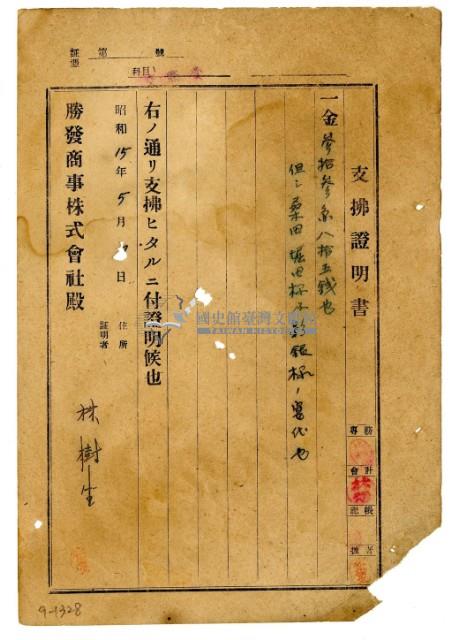 証憑 第 號
科目
支拂證明書
一金參拾參円八拾五錢也
但シ桑田堀田
銀杯ノ
代也
右ノ通リ支拂ヒタルニ付證明候也
昭和15年5月 日
住所
証明者
林樹生
勝發商事株式會社殿
專務
會計
記帳
擔者
國史館臺灣文獻館
TAIWAN HISTORICA
9-1328